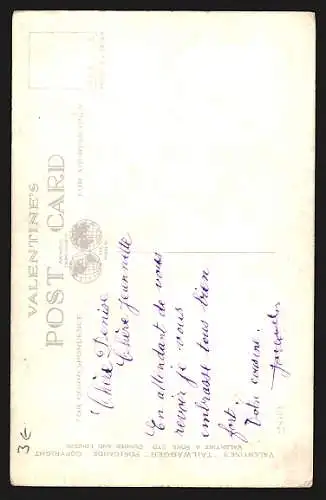 VALENTINE'S
POST CARD
FOR CORRESPONDENCE
FOR ADDRESS ONLY
Chère Denise
Chère Jeannette
En attendant de vous
revoir je vous
embrasse tous bien
fort.
Votre cousine.
Jacqueline
VALENTINE'S "TAILWAGGER" POSTCARDS COPYRIGHT
VALENTINE & SONS, LTD. DUNDEE AND LONDON
3€